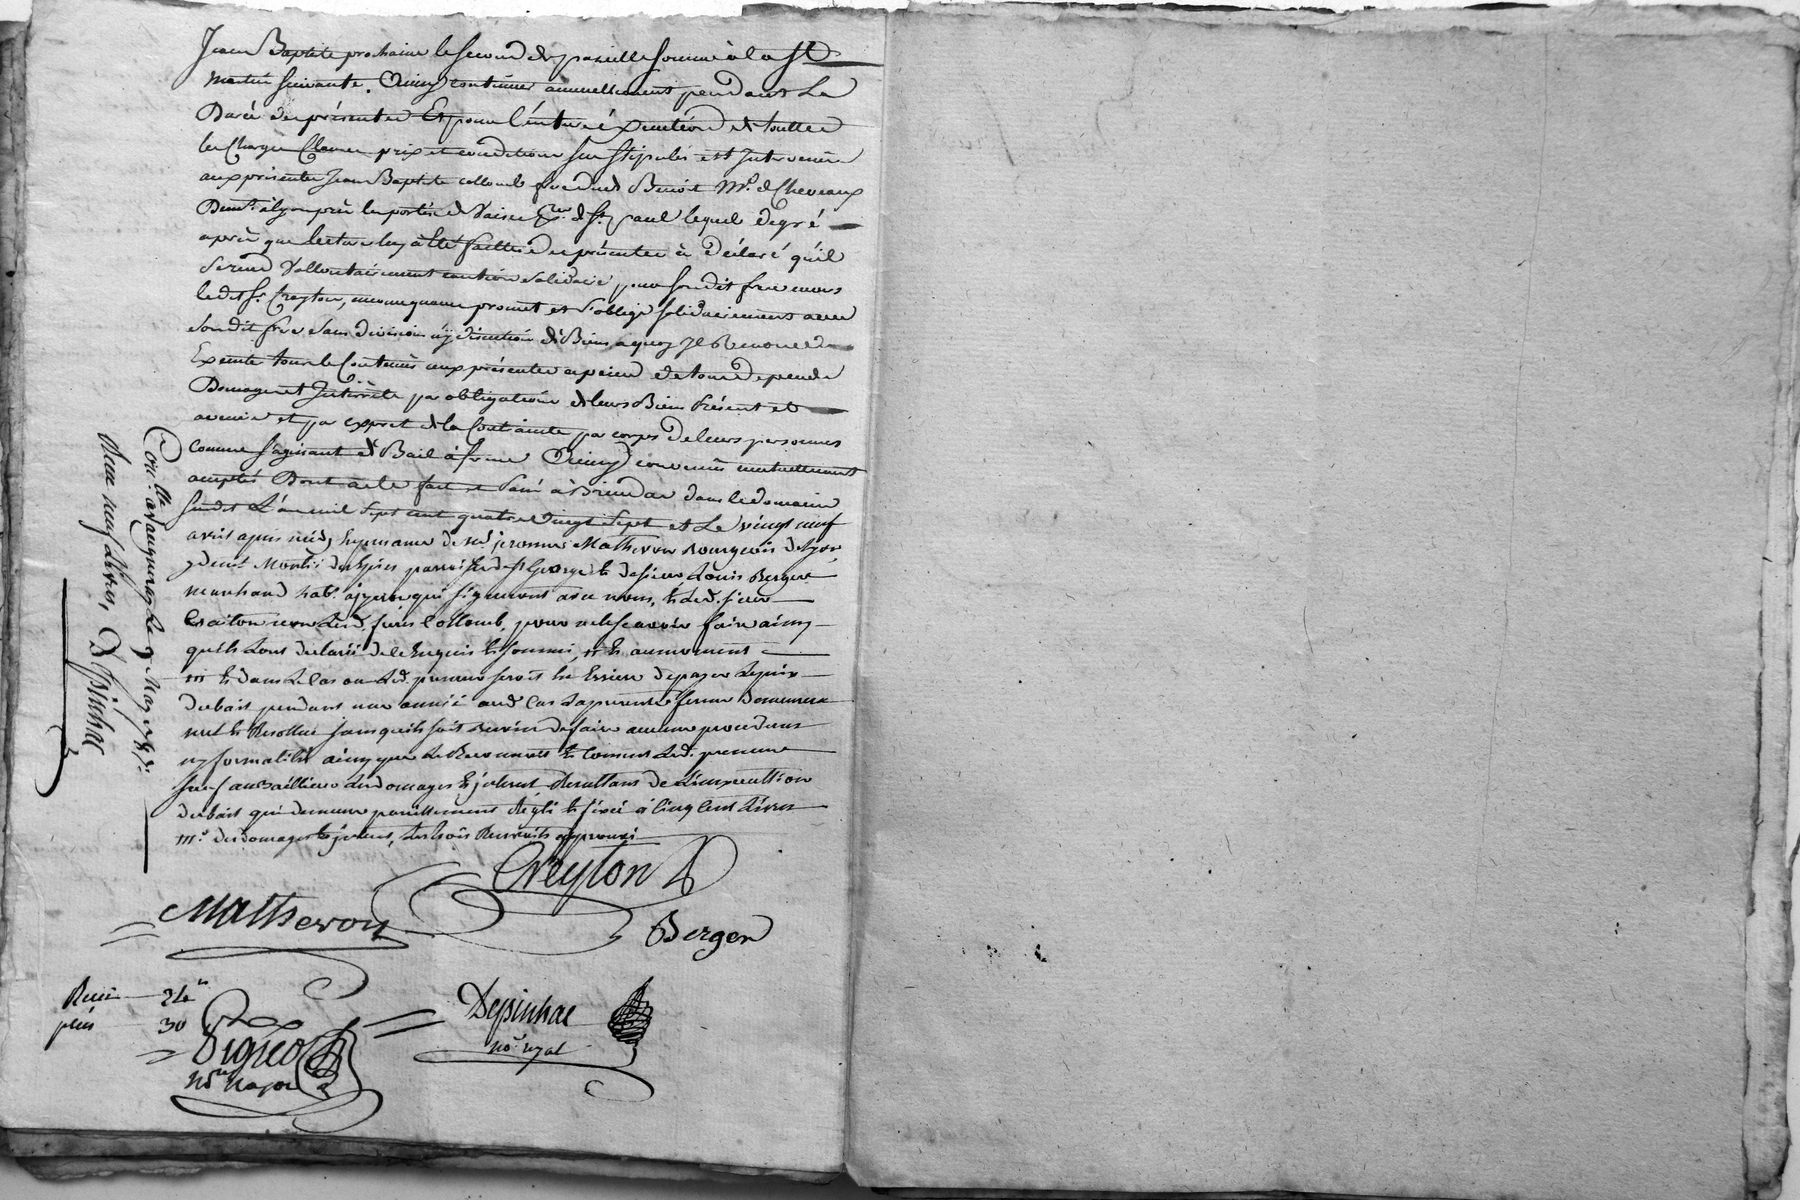 Jean Baptiste prochaine le second de pareille somme à la St
Martin suivante. Ainsy continuer annuellement pendant La
Durée des présentes Et pour l'entière éxécution de touttes
les Charges Clauses prix et conditions sus stipulés est Intervenu
aux présentes Jean Baptiste collomb frere dud Benoit Md. de Chevaux
Demt. à lyon près les portes de Vaise de St. paul lequel de gré
après que lecture luy à été faitte des présentes à déclaré qu'il
se rend Vollontairement caution solidaire pour son dit frere envers
ledit Sr. Creyton, en conséquence promet et s'oblige solidairement avec
son dit frere sans division ny discution de Biens a quoy Il Renonce
Exécuter tout le Contenus aux présentes a peine de tous dépends
Domages et Intérêts par obligations de leurs Biens Présent et
avenir et par exprès de la Contrainte par corps de leurs personnes
comme s'agissant de Bail à ferme Ainsy convenus mutuellement
acceptés Dont acte fait et passé à Brindas dans le domaine
susdit L'an mil sept cent quatre vingt sept et Le vingt neuf
avril après midy En presance de sr. jerosme Matheron Bourgeois de lyon
y demt Montée parroisse de St George & de sieur Louis Berger
marchand hab. qui signeront avec nous, & led. sieur
Craiton non Lesd. frères Collomb, pour ne le scavoir faire ainsy
qu'ils L'ont declaré de ce Enquis & sommés, et au moment
& dans Le cas ou Led. preneur seroit En Arriere de payer Le prix
du bail pendant une année aud cas La presente ferme demeurera
nulle & Resollue sans qu'il soit Besoin de faire aucune procedure
ny formalités ainsy que Le Reconnoit & Consent Led. preneur
sauf au Bailleur Les domages & jnterets Resultans de L'inexecution
du bail qui demeure pareillement Reglé & fixé à Cinq Cent Livres
des domages & jnterets, approuvé
Creyton
Matheron
Berger
Reçu 24
plus 30
Depinhac
no. royal
Conlle. a Vaugneray Le 9 May 1787.
Reçu neuf Livres, Depinhac